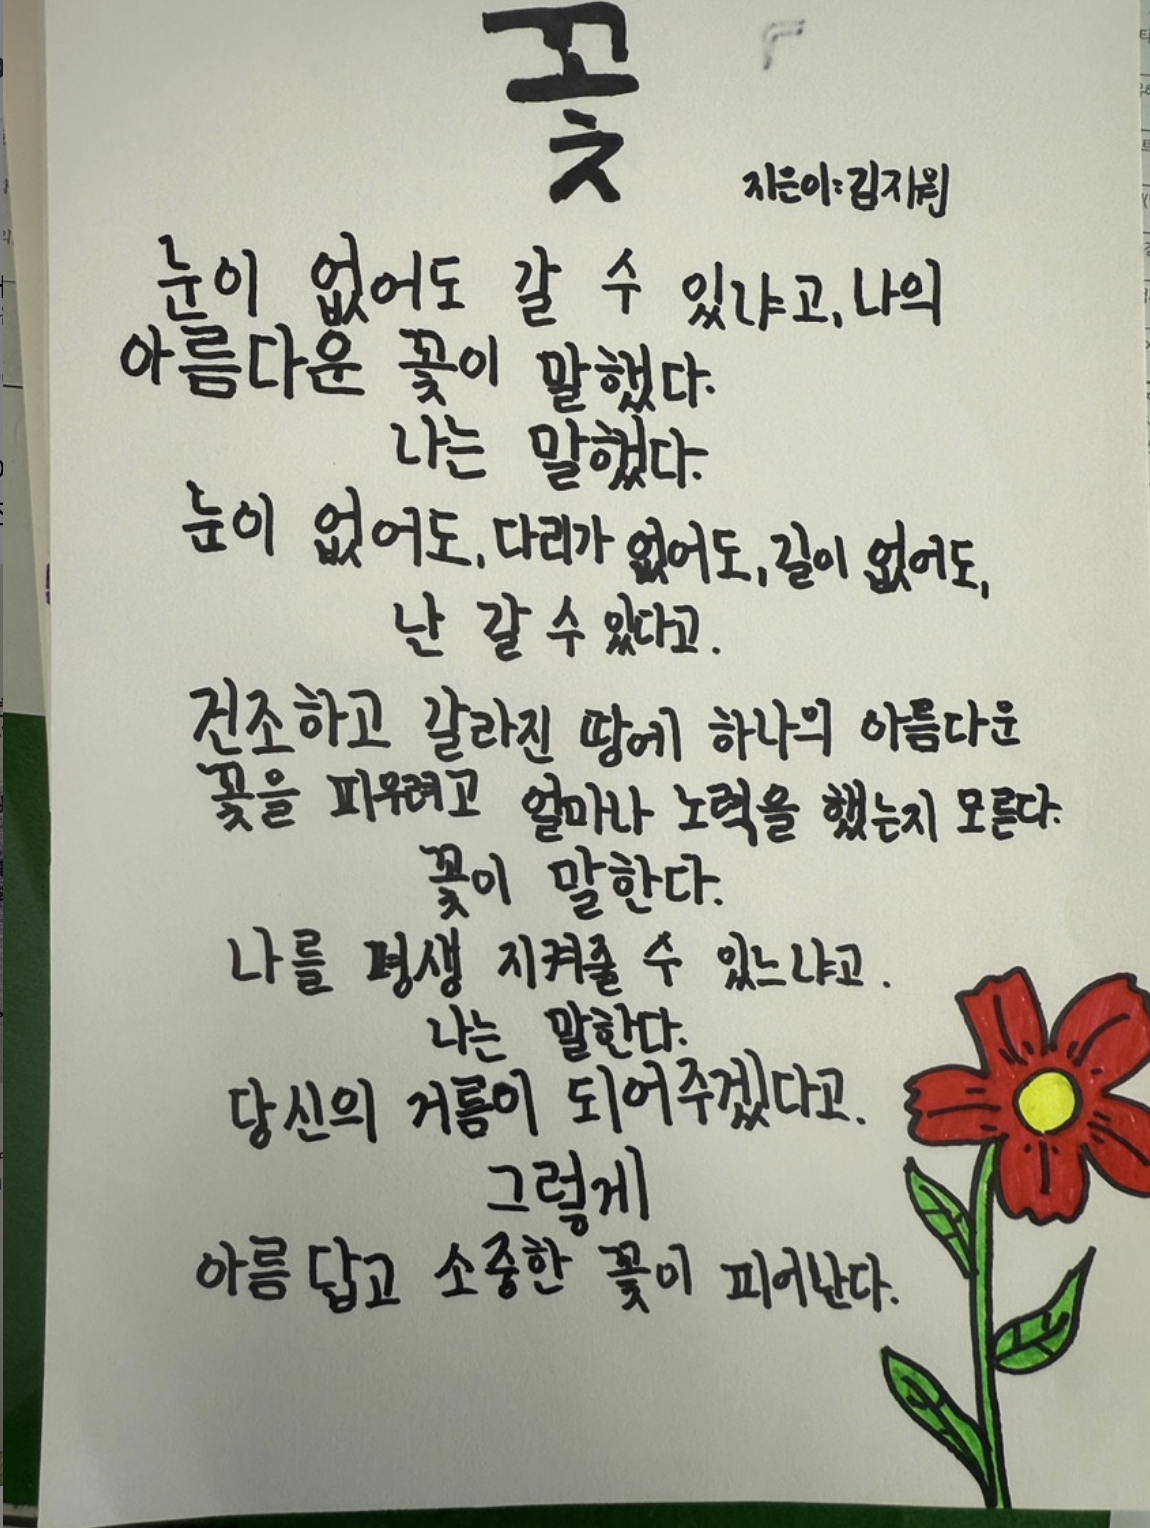 꽃
지은이:김지원
눈이 없어도 갈 수 있냐고, 나의
아름다운 꽃이 말했다.
나는 말했다.
눈이 없어도, 다리가 없어도, 길이 없어도,
난 갈 수 있다고.
건조하고 갈라진 땅에 하나의 아름다운
꽃을 피우려고 얼마나 노력을 했는지 모른다.
꽃이 말한다.
나를 평생 지켜줄 수 있느냐고.
나는 말한다.
당신의 거름이 되어주겠다고.
그렇게
아름답고 소중한 꽃이 피어난다.